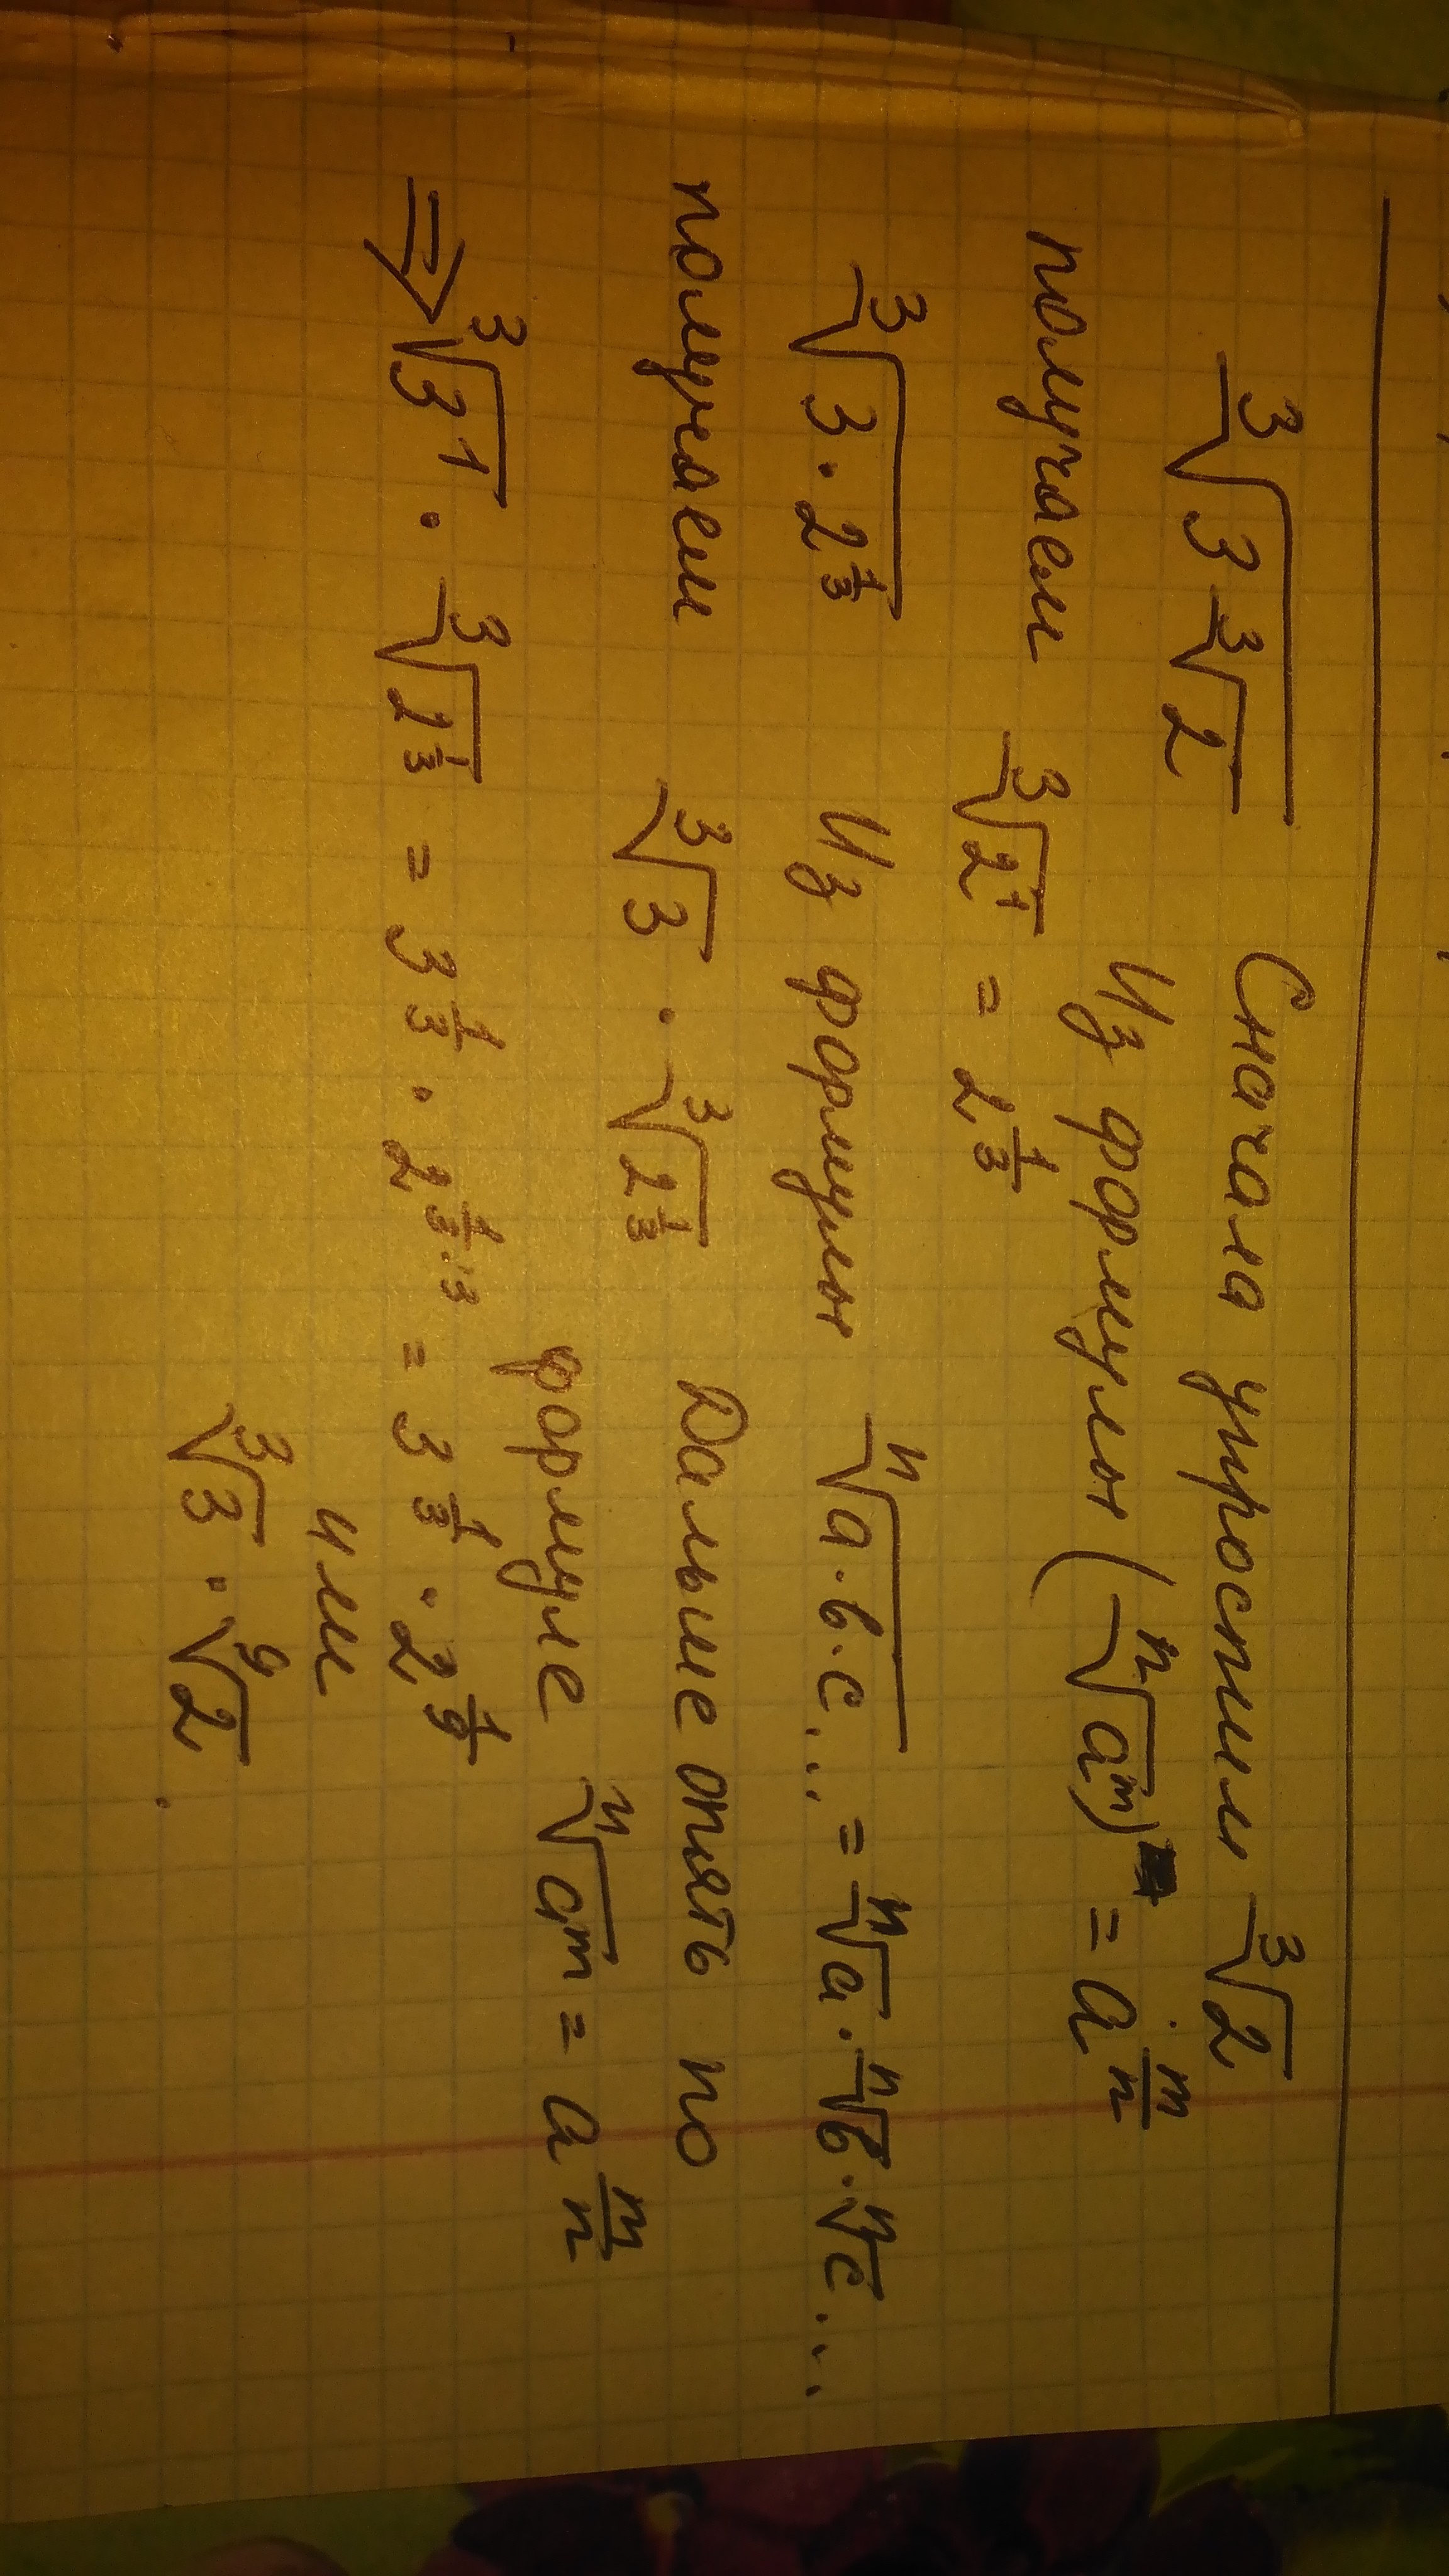 ∛(3∛2) Сначала упростим ∛2
Из формулы (ⁿ√aᵐ) = a^(m/n)
получаем ∛2¹ = 2^(1/3)
∛(3·2^(1/3)) Из формулы ⁿ√(a·b·c...) = ⁿ√a·ⁿ√b·ⁿ√c...
получаем ∛3 · ∛(2^(1/3)) Дальше опять по
формуле ⁿ√aᵐ = a^(m/n)
⇒ ∛3¹ · ∛(2^(1/3)) = 3^(1/3) · 2^(1/3:3) = 3^(1/3) · 2^(1/9)
или
∛3 · ⁹√2